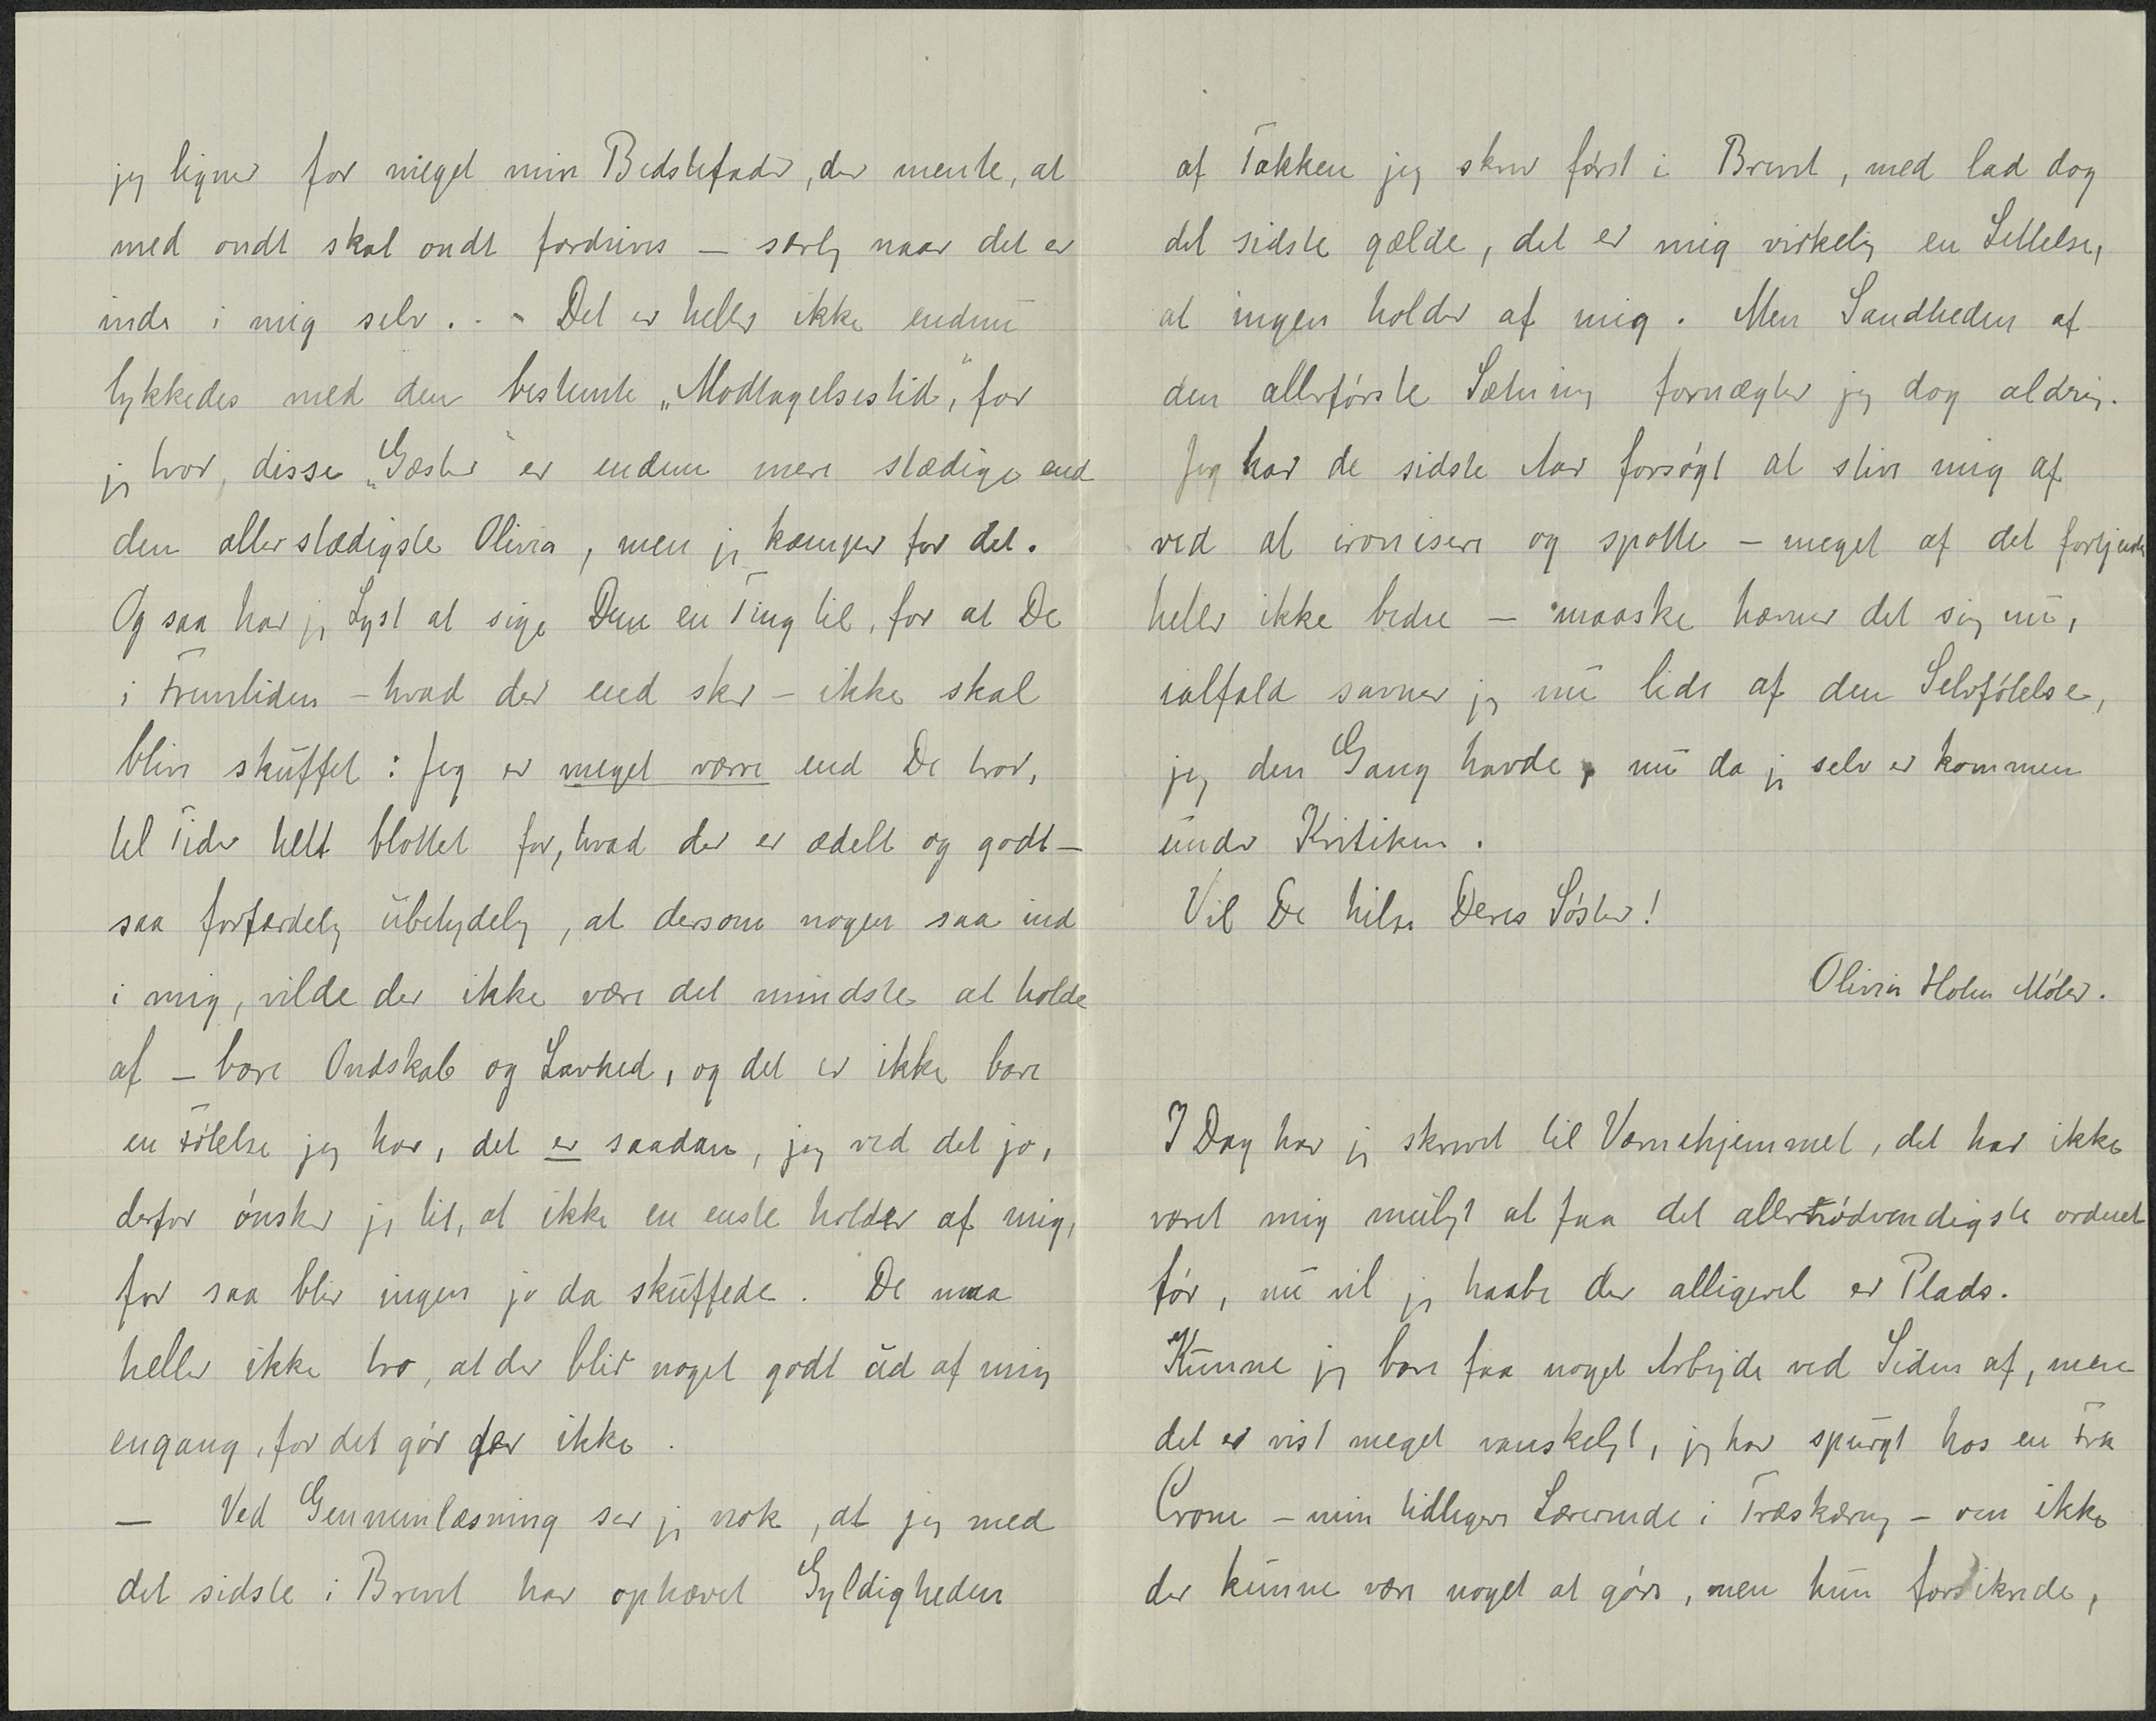 jeg ligner for meget min Bedstefader, der mente, at
med ondt skal ondt fordrives – særlig naar det er
inde i mig selv. . - Det er heller ikke endnu
lykkedes med den bestemte „Modtagelsestid“, for
jeg tror, disse „Gæster“ er endnu mere stædige end
den allerstædigste Olivia, men jeg kæmper for det.
Og saa har jeg Lyst at sige Dem en Ting til, for at De
i Fremtiden – hvad der end sker – ikke skal
blive skuffet: Jeg er meget værre end De tror,
til Tider helt blottet for, hvad der er ædelt og godt –
saa forfærdelig ubetydelig, at dersom nogen saa ind
i mig, vilde der ikke være det mindste at holde
af – bare Ondskab og Lavhed, og det er ikke bare
en Følelse jeg har, det er saadan, jeg ved det jo,
derfor ønsker jeg tit, at ikke en eneste holder af mig,
for saa blir ingen jo da skuffede. De maa
heller ikke tro, at der blir noget godt ud af mig
engang, for det gør der ikke.
– Ved Gennemlæsning ser jeg nok, at jeg med
det sidste i Brevet har ophævet Gyldigheden
af Takken jeg skrev først i Brevet, med lad dog
det sidste gælde, det er mig virkelig en Lettelse,
at ingen holder af mig. Men Sandheden af
den allerførste Sætning fornægter jeg dog aldrig.
Jeg har de sidste Aar forsøgt at stive mig af
ved at ironisere og spotte – meget af det fortjente
heller ikke bedre – maaske hævner det sig nu,
ialfald savner jeg nu lidt af den Selvfølelse,
jeg den Gang havde, nu da jeg selv er kommen
under Kritiken.
Vil De hilse Deres Søster!
Olivia Holm Møller.
I Dag har jeg skrevet til Værnehjemmet, det har ikke
været mig muligt at faa det allernødvendigste ordnet
før, nu vil jeg haabe der alligevel er Plads.
Kunne jeg bare faa noget Arbejde ved Siden af, men
det er vist meget vanskeligt, jeg har spurgt hos en Frk
Crone – min tidligere Lærerinde i Træskæring – om ikke
der kunne være noget at gøre, men hun forsikrede,